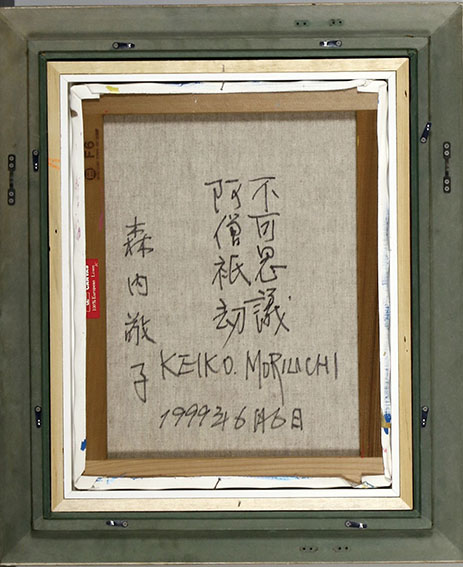 不可思議
阿僧祇劫
森内敬子
KEIKO. MORIUCHI
1999年6月6日
F6
100% European Linen